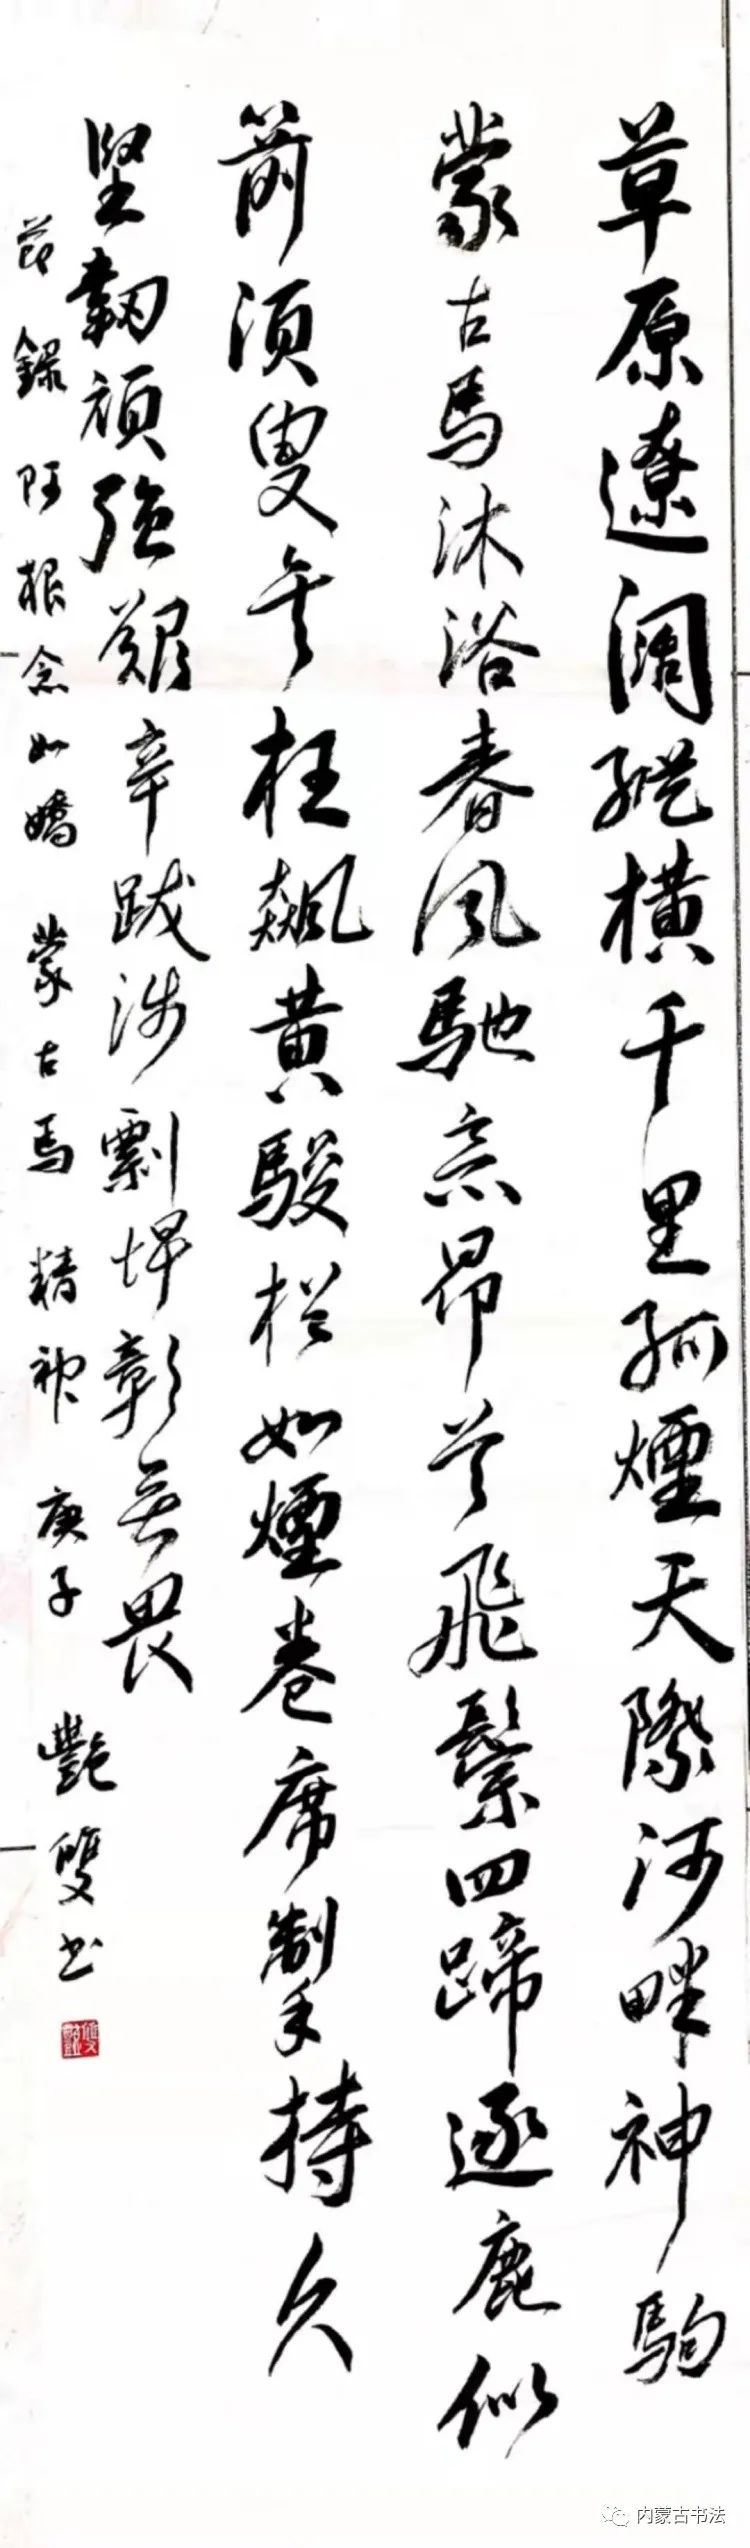 草原遼阔縱橫千里孤煙天際河畔神駒
蒙古馬沐浴春風馳昂首飛鬃四蹄逐鹿似
箭須臾狂飆黃駿如煙卷席掣持久
堅韌頑強艱辛跋涉剽悍彰無畏
節錄阿根念如嬌蒙古馬精神庚子艷雙書
内蒙古书法